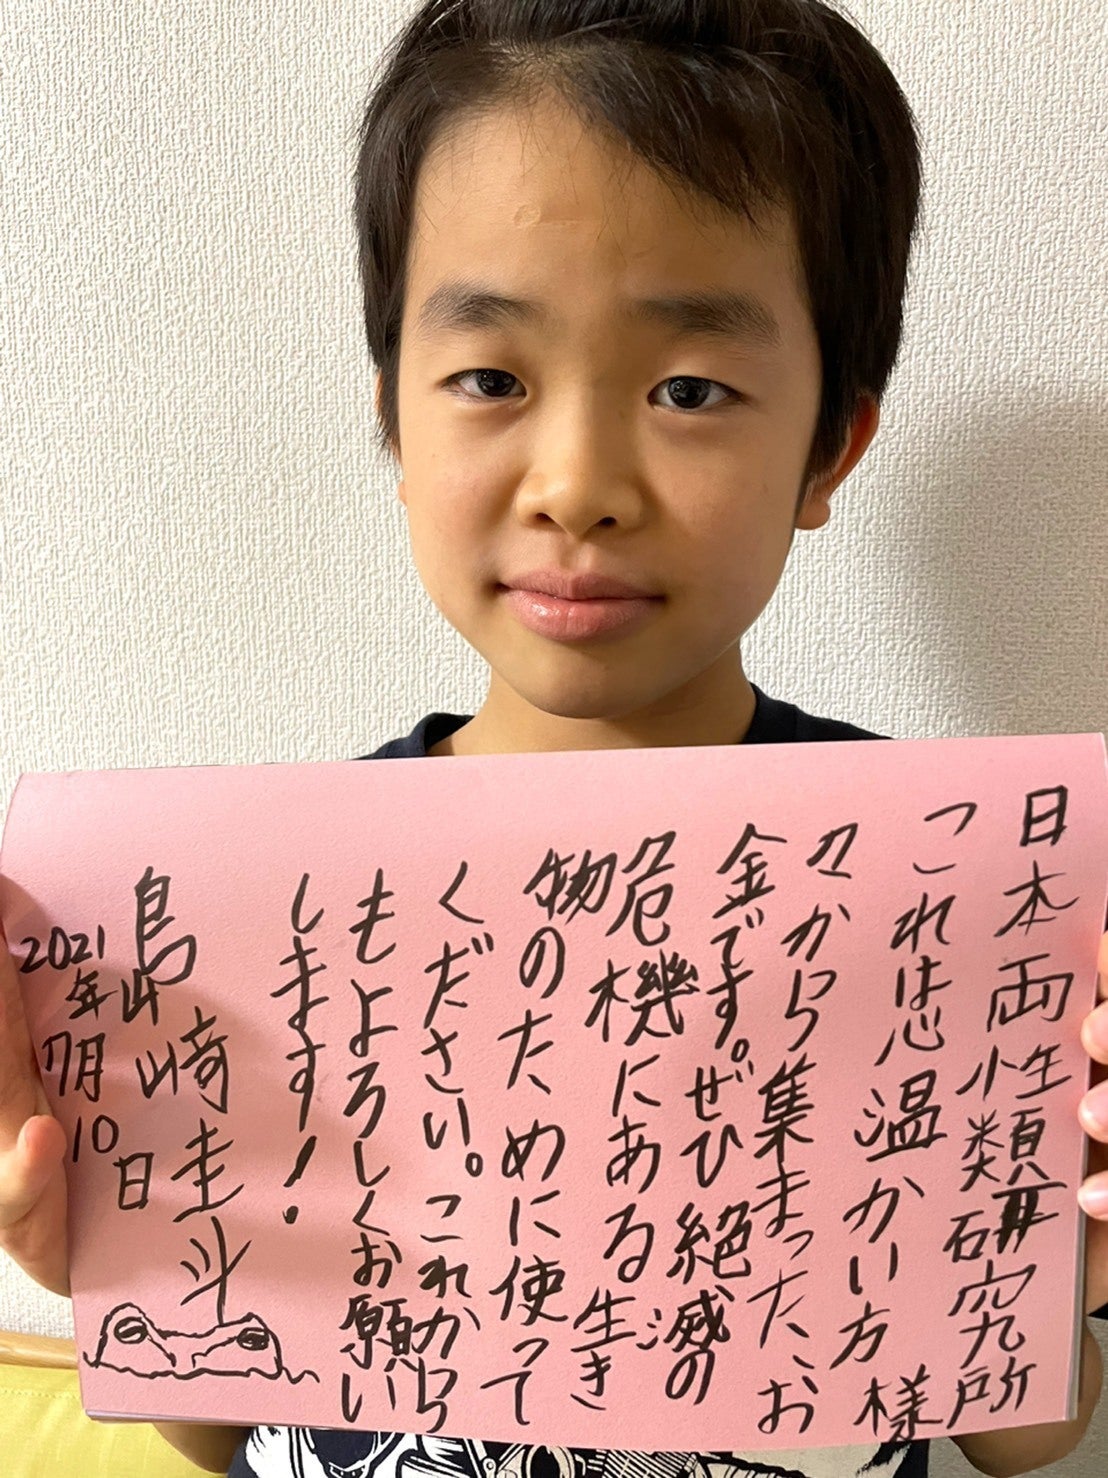 日本両生類研究所
様
これは心温かい方
々から集まったお
金です。ぜひ絶滅の
危機にある生き
物のために使って
ください。これから
もよろしくお願い
します!
島﨑圭斗
2021年7月10日